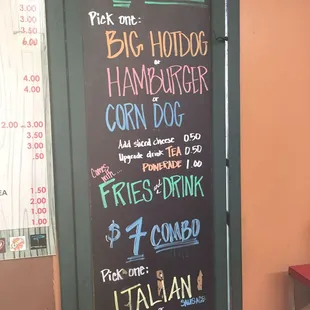 Pick one:
BIG HOTDOG
or
HAMBURGER
or
CORN DOG
Add sliced cheese 0.50
Upgrade drink TEA 0.50
POWERADE 1.00
Comes with...
FRIES and a DRINK
$7 COMBO
Pick one:
ITALIAN
SAUSAGE
or
3.00
3.00
6.00
4.00
4.00
2.00 3.00
3.00
3.00
EA 1.50
1.00
1.00
1.00